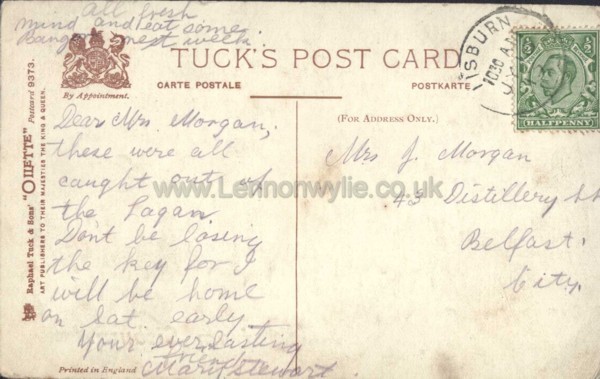 All fresh
mind and eat some
next week
TUCK'S POST CARD
CARTE POSTALE
POSTKARTE
By Appointment.
(FOR ADDRESS ONLY.)
Raphael Tuck & Sons' "OILETTE" Postcard 9373.
ART PUBLISHERS TO THEIR MAJESTIES THE KING & QUEEN.
Dear Mrs. Morgan,
these were all
caught out of
the Lagan.
Dont be losing
the key for I
will be home
on Sat. early
Your everlasting
friend
Mary Stewart.
Printed in England
Mrs J. Morgan
43 Distillery St
Belfast.
City.
ISBURN
10.30 A
½
½
HALFPENNY
www.Lennonwylie.co.uk